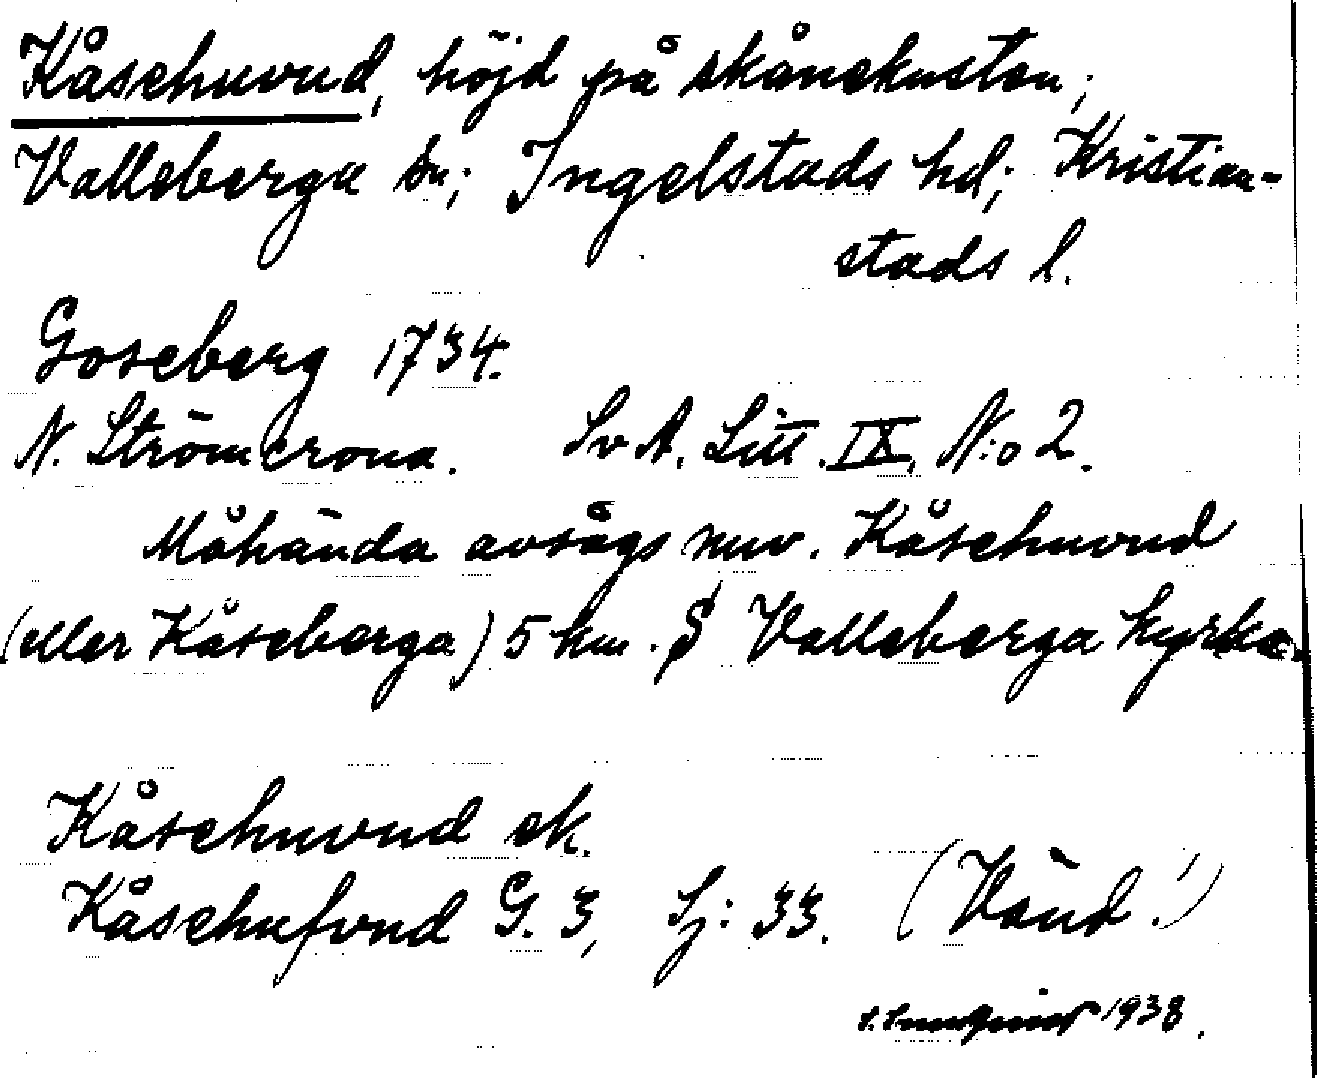 Kåsehuvud, höjd på skånekusten;
Valleberga sn; Ingelstads hd; Kristian-
stads l.
Goseberg 1734.
N. Strömcrona. SvA. Litt. IX, N:o 2.
Måhända avsågs nuv. Kåsehuvud
(eller Kåseberga) 5 km. S Valleberga kyrka.
Kåsehuvud ek.
Kåsehufvud G. 3, Sj: 33. (Vänd!)
1938.